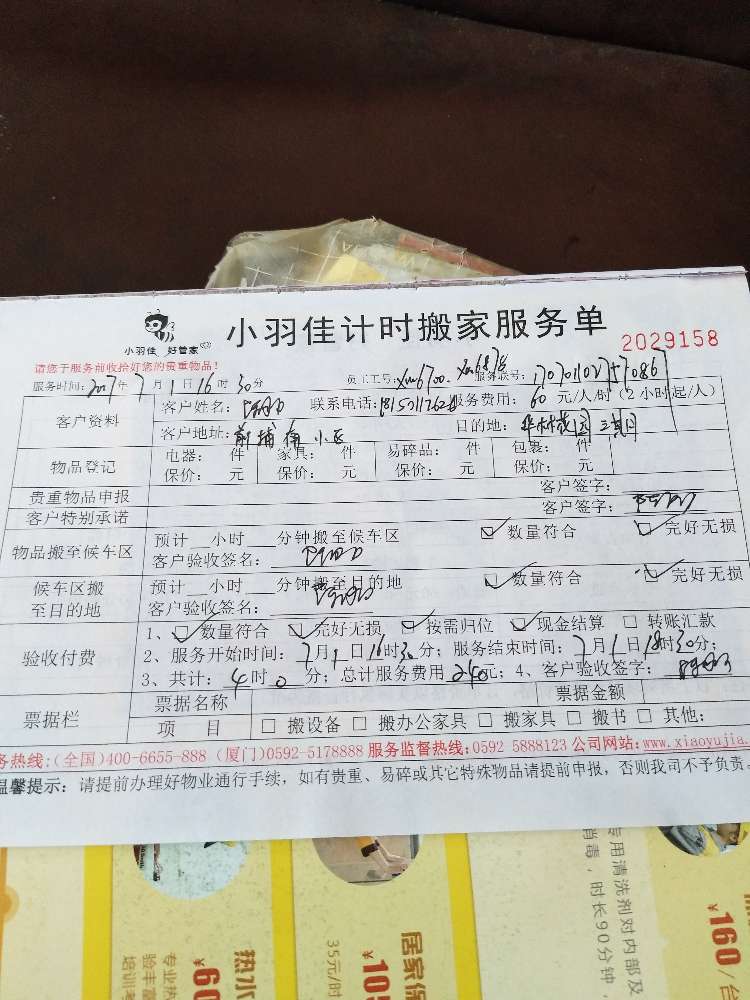 小羽佳 好管家
小羽佳计时搬家服务单
2029158
请您于服务前收拾好您的贵重物品！
服务时间：2017年7月1日16时30分 员工工号：xm6700. xm6878 服务联号：
客户资料
客户姓名： 联系电话： 服务费用：60元/人/时（2小时起/人）
客户地址：前埔南小区 目的地：
物品登记
电器： 件 家具： 件 易碎品： 件 包裹： 件
保价： 元 保价： 元 保价： 元 保价： 元
贵重物品申报 客户签字：
客户特别承诺 客户签字：
物品搬至候车区
预计__小时___分钟搬至候车区 数量符合 完好无损
客户验收签名：
候车区搬至目的地
预计__小时___分钟搬至目的地 数量符合 完好无损
客户验收签名：
验收付费
1、 数量符合 完好无损 按需归位 现金结算 转账汇款
2、服务开始时间：7月1日16时30分；服务结束时间：7月1日18时30分；
3、共计：4时0分；总计服务费用240元；4、客户验收签字：
票据栏
票据名称 票据金额
项 目 搬设备 搬办公家具 搬家具 搬书 其他：
务热线：(全国)400-6655-888 (厦门)0592-5178888 服务监督热线：0592 5888123 公司网站：www.xiaoyujia.
温馨提示：请提前办理好物业通行手续，如有贵重、易碎或其它特殊物品请提前申报，否则我司不予负责。
专用清洗剂对内部及
消毒，时长90分钟，
160/台
居家保
105
35元/时
热水
60
专业热
验丰富
培训考